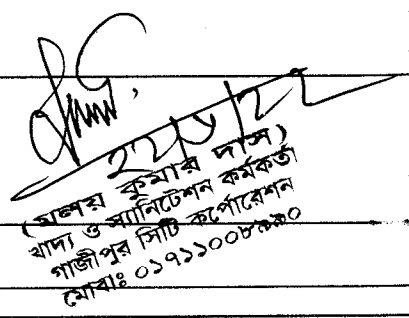 (মলয় কুমার দাস)
খাদ্য ও স্যানিটেশন কর্মকর্তা
গাজীপুর সিটি কর্পোরেশন
মোবাঃ ০১৭১১০০৮৯৯০